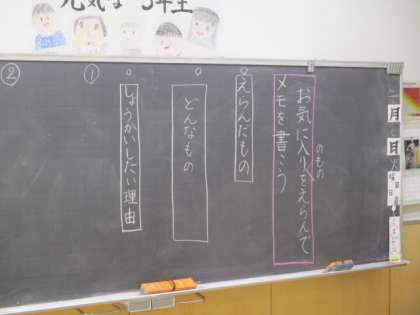 元気な 3年生
お気に入りをえらんで
のもの
メモを書こう
○えらんだもの
○どんなもの
○しょうかいしたい理由
①
②
月
日
曜日